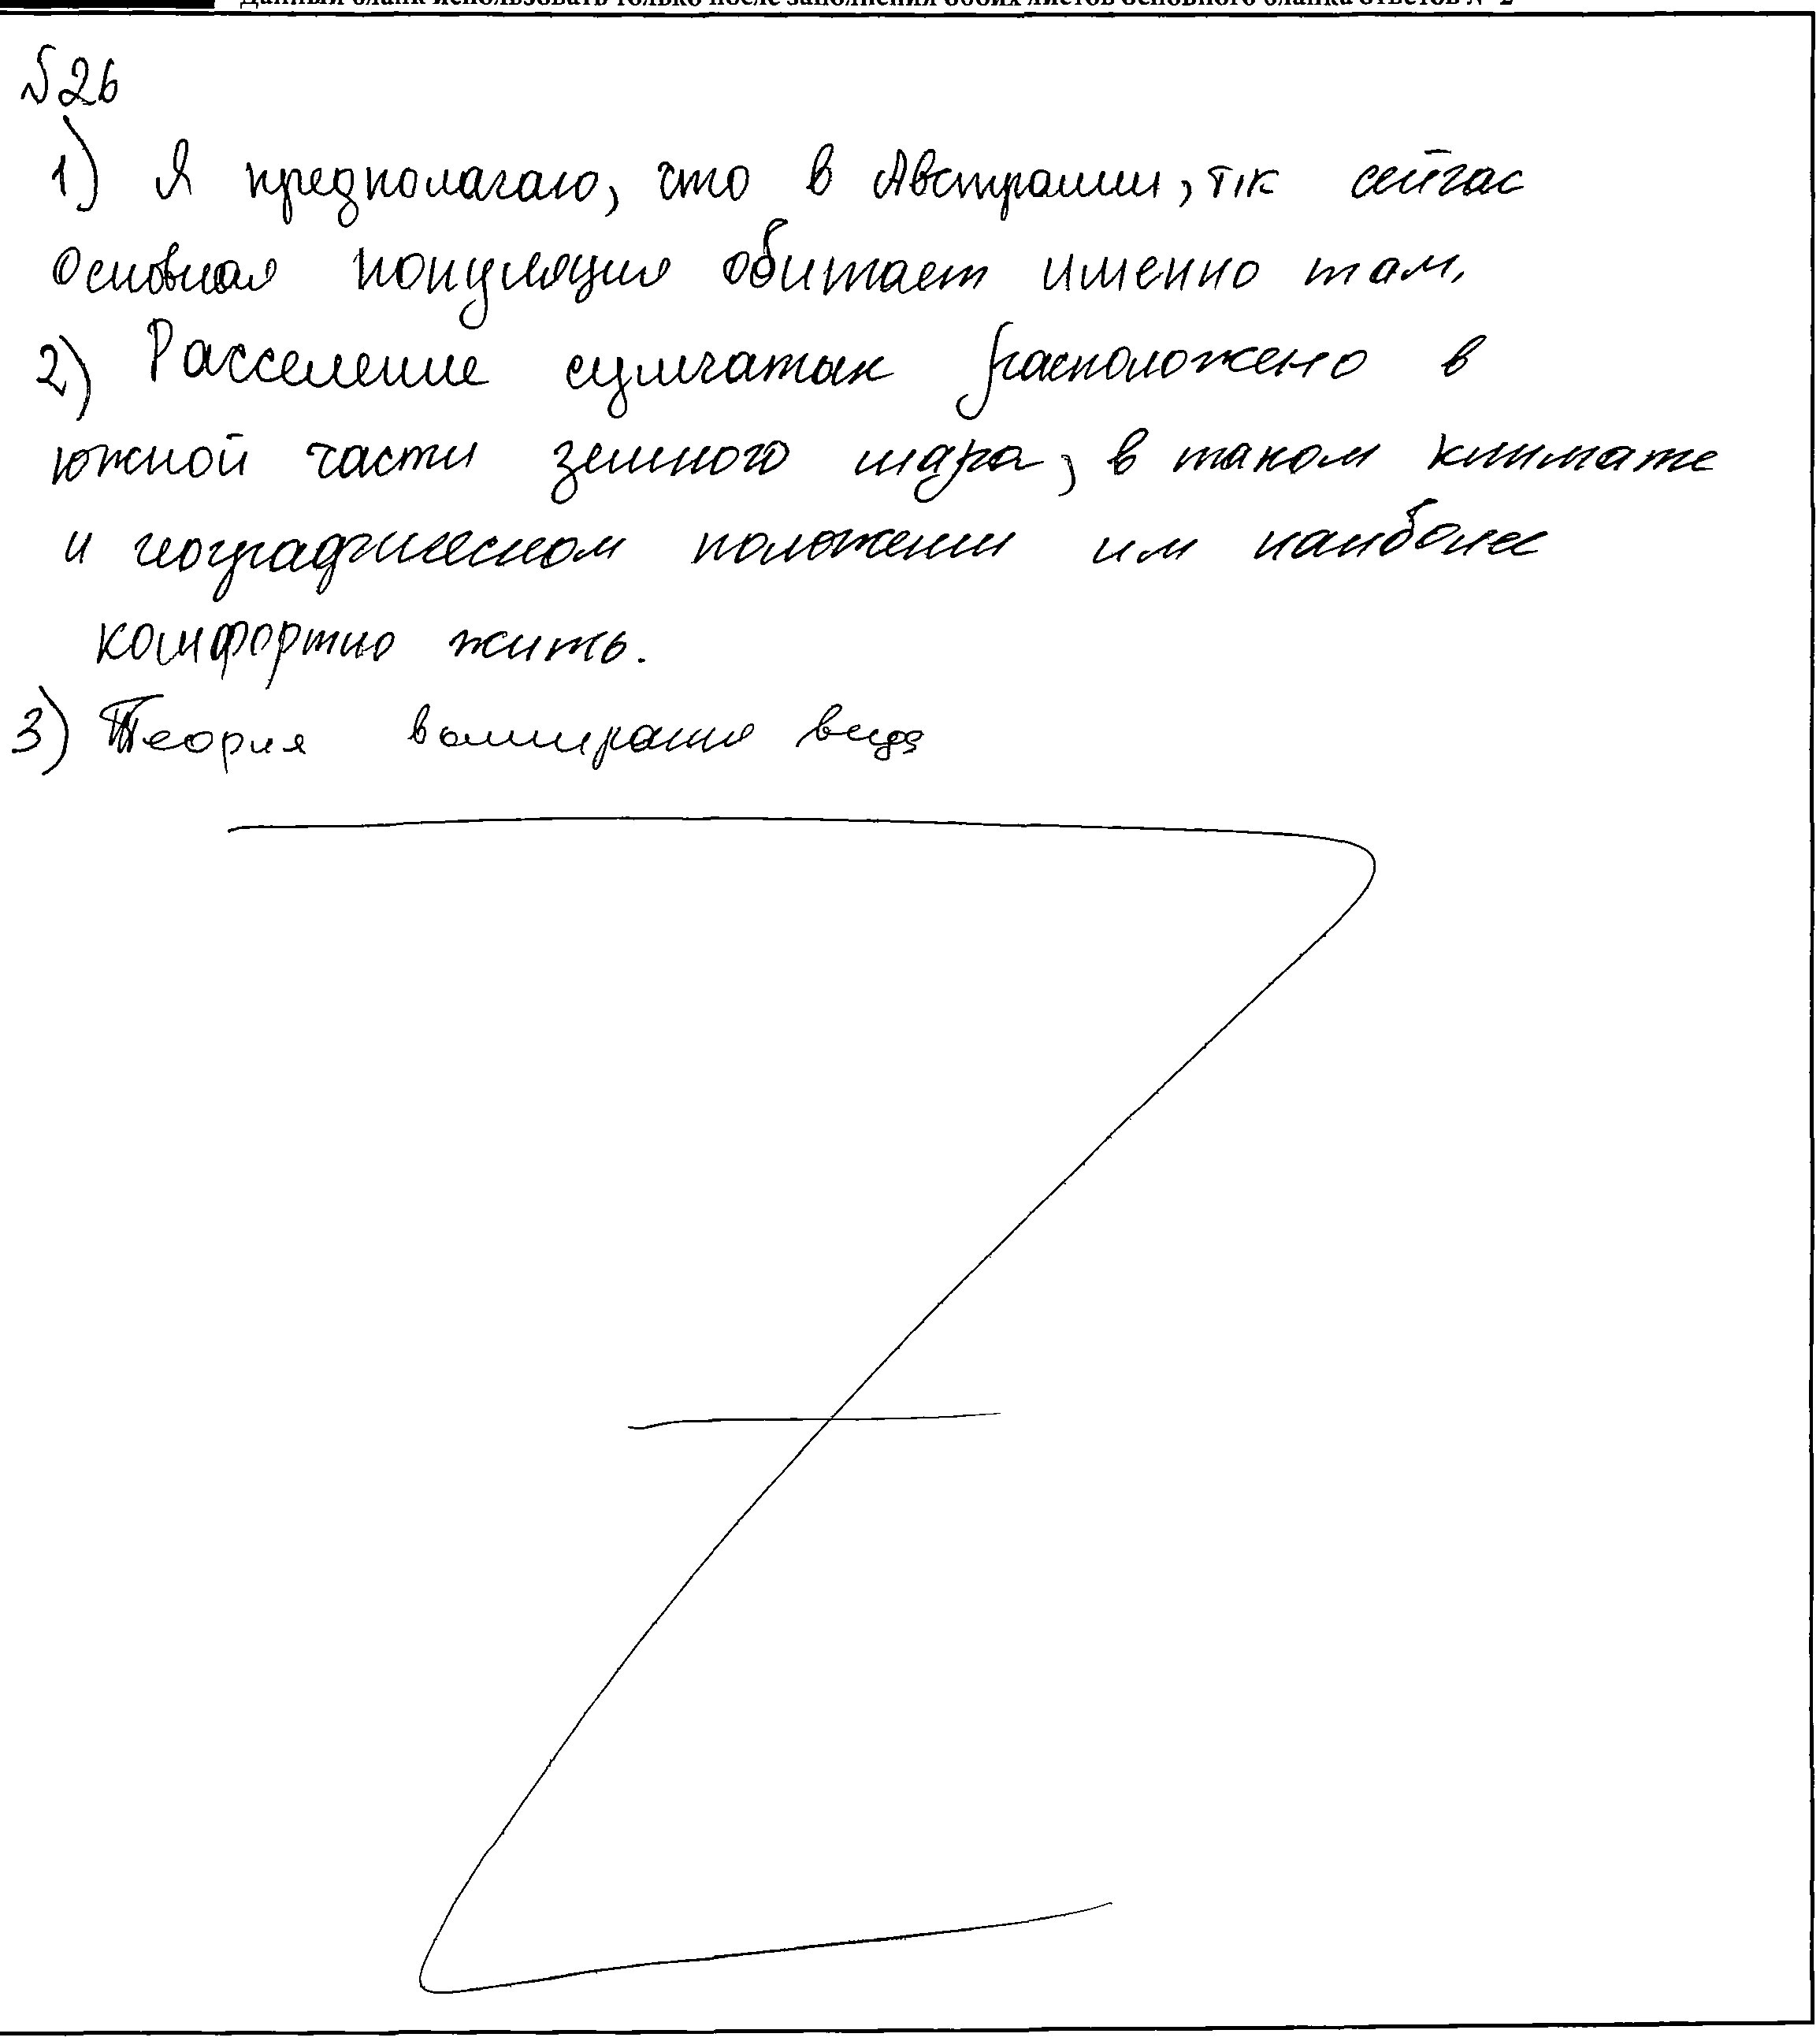 Данный бланк использовать только после заполнения обоих листов основного бланка ответов № 2
№26
1) Я предполагаю, что в Австралии, т.к сейчас
основная популяция обитает именно там.
2) Расселение сумчатых расположено в
южной части земного шара, в таком климате
и географическом положении им наиболее
комфортно жить.
3) Теория вымирания вида